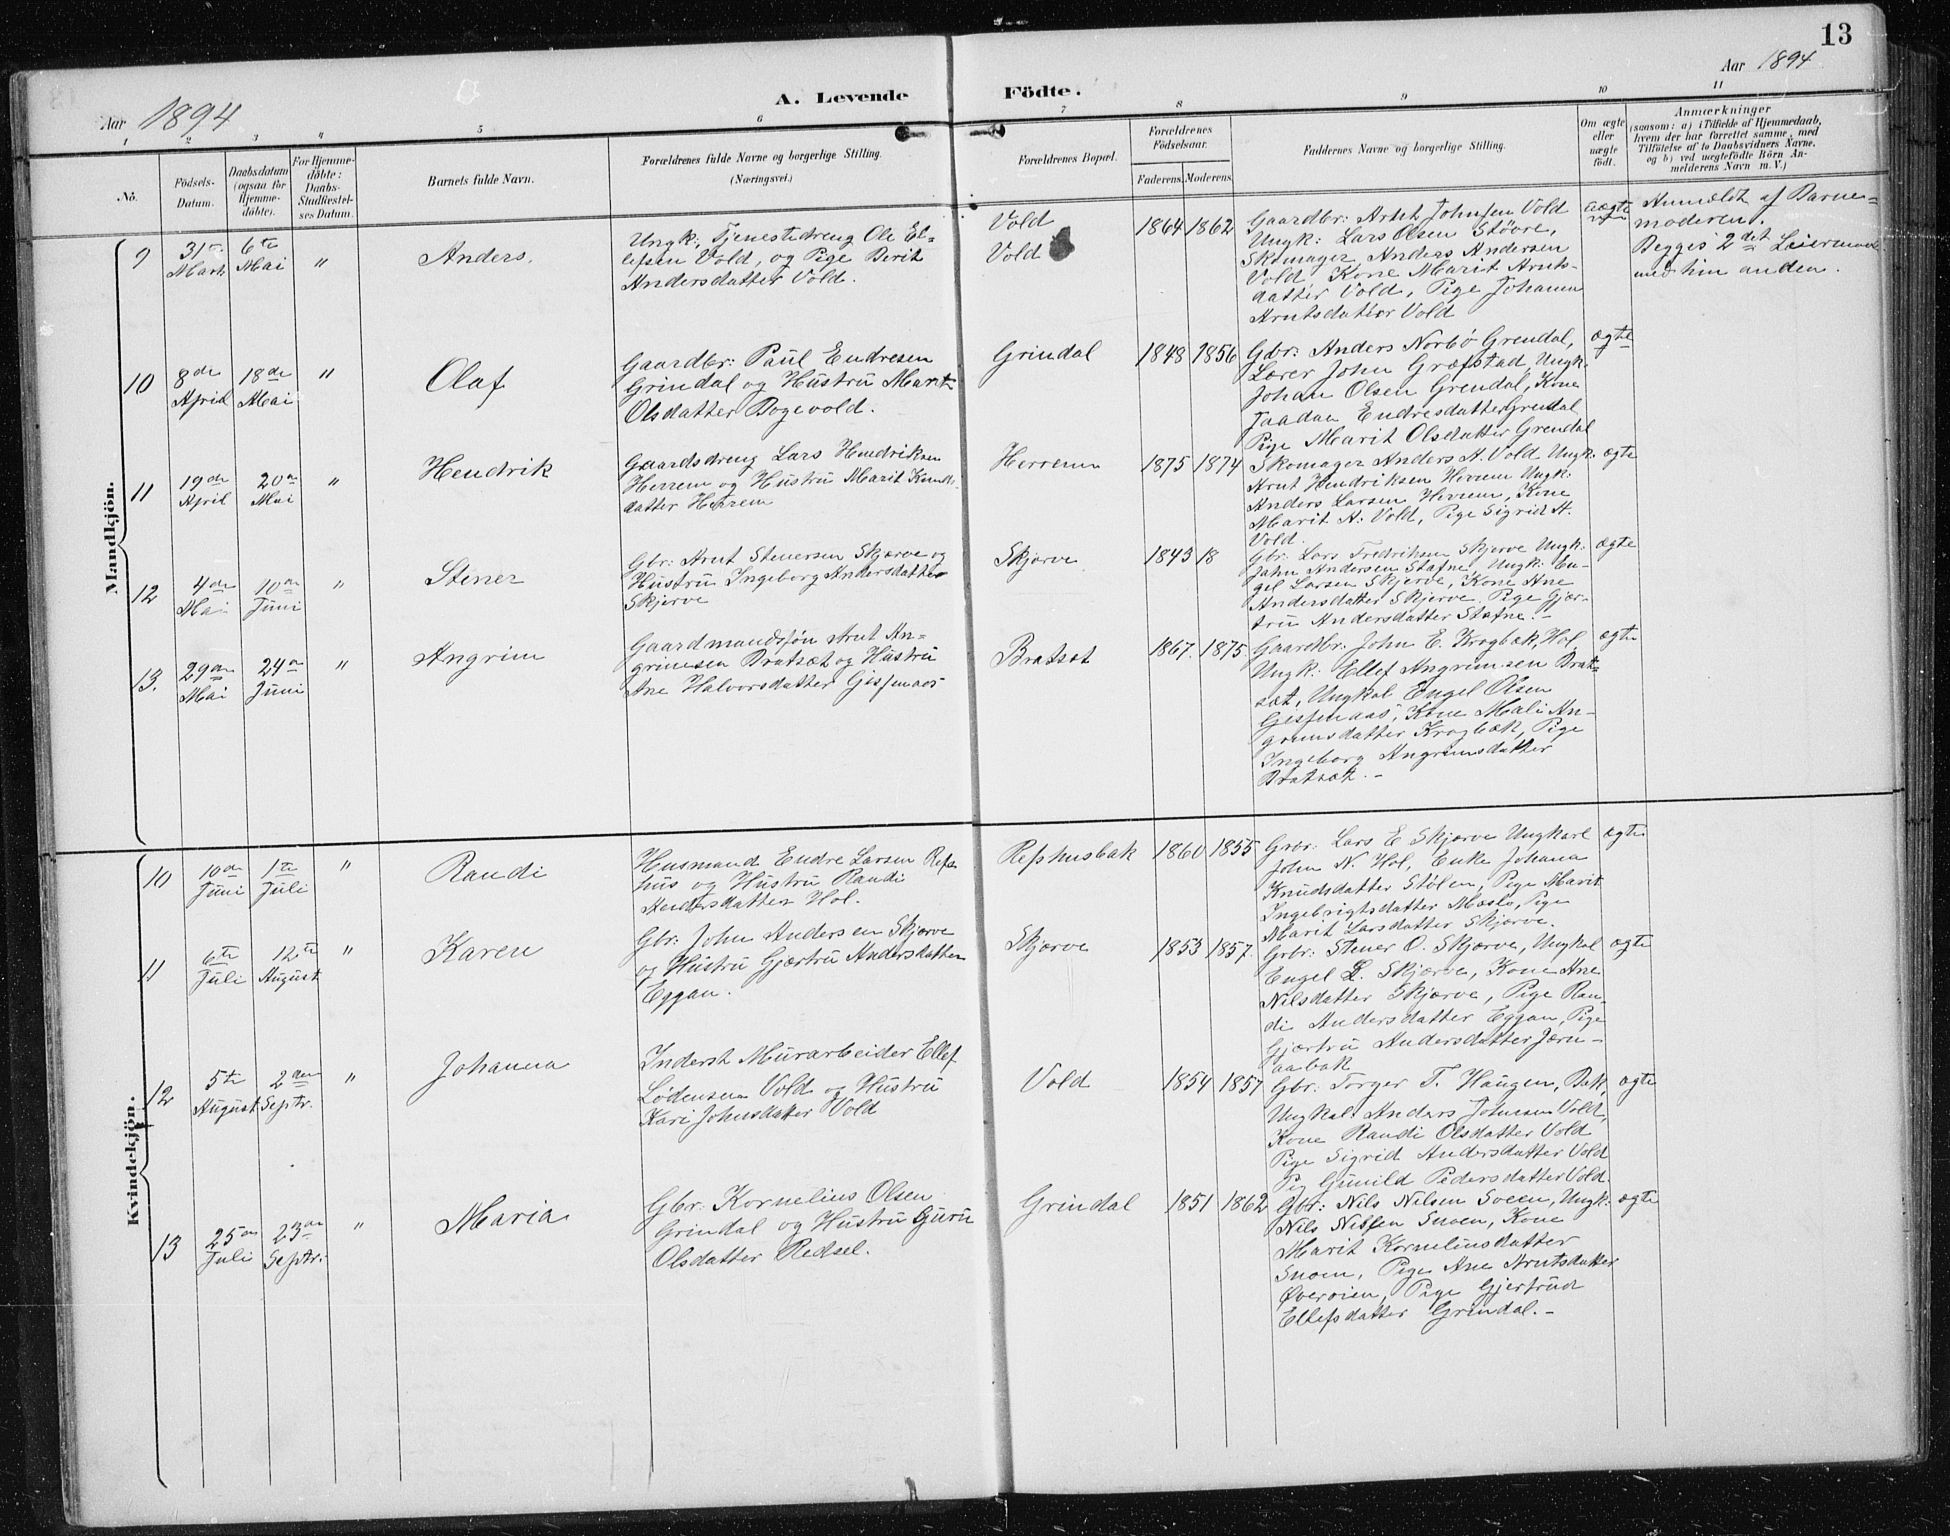 13
Aar 1894
A. Levende Födte.
Aar 1894
1 2 3 4 5 6 7 8 9 10 11
No.
Födsels-
Datum.
Daabsdatum
(ogsaa for
Hjemme-
döbte).
For Hjemme-
döbte:
Daabs-
Stadfæstel-
ses Datum.
Barnets fulde Navn.
Forældrenes fulde Navne og borgerlige Stilling.
(Næringsvei.)
Forældrenes Bopæl.
Forældrenes
Födselsaar.
Faderens. Moderens.
Faddernes Navne og borgerlige Stilling.
Om ægte
eller
uægte
födt.
Anmærkninger
(saasom: a) i Tilfælde af Hjemmedaab,
hvem der har forrettet samme, med
Tilföielse af to Daabsvidners Navne.
og b) ved uægtefödte Börn An-
melderens Navn m. V.)
Mandkjön.
9
31te
Marts
6te
Mai
"
Anders.
Ungk: Tjenestedreng Ole El-
lefsen Vold, og Pige Berit
Andersdatter Vold.
Vold
Vold
1864 1862
Gaardbr: Arnt Johnsen Vold
Ungk: Lars Olsen Støvre,
Skomager Anders Andersen
Vold, Kone Marit Arnts-
datter Vold, Pige Johanna
Arntsdatter Vold
uægte
Anmeldt af Barne-
moderen.
Begges 2det Leiermaal
med hin anden.
10
8de
April
18de
Mai
"
Olaf
Gaardbr: Paul Endresen
Grindal og Hustru Marit
Olsdatter Bogevold.
Grindal
1848 1856
Gbr: Anders Norbø Grendal,
Lærer John Græfstad, Ungk.
Johan Olsen Grendal, Kone
Endresdatter Grendal
Pige Marit Olsdatter Grendal
ægte
11
19de
April
20de
Mai
"
Hendrik
Gaardsdreng Lars Hendriksen
Herrem og Hustru Marit Knuds-
datter Herrem
Herrem
1875 1874
Skomager Anders A. Vold, Ungk.
Arnt Hendriksen Herrem Ungk:
Anders Larsen Herrem, Kone
Marit A. Vold, Pige Sigrid A.
Vold.
ægte
12
4de
Mai
10de
Juni
"
Stener
Gbr: Arnt Stenersen Skjærve og
Hustru Ingeborg Andersdatter
Skjerve
Skjerve
1843 18
Gbr: Lars Fredriksen Skjerve Ungk:
John Andersen Stafne, Ungk: En-
gel Larsen Skjerve, Kone Ane
Andersdatter Skjerve Pige Gjær-
tru Andersdatter Stafne. -
ægte
13.
29de
Mai
24de
Juni
"
Angrim
Gaardmandssøn Arnt An-
grimsen Bratsæt og Hustru
Ane Halvorsdatter Gisjnaas
Bratsæt
1867. 1875
Gaardbr: John E. Krogbæk, Hol
Ungk: Ellef Angrimsen Brat-
sæt, Ungkal Engel Olsen
Gisjnaas, Kone Mali An-
grimsdatter Krogbæk, Pige
Ingeborg Angrimsdatter
Bratsæt. -
ægte
Kvindekjön.
10
10de
Juni
1te
Juli
"
Randi
Husmand Endre Larsen Refs-
hus og Hustru Randi
Andersdatter Hol.
Refshusbak
1860 1855
Gbr: Lars E Skjærve Ungkarl
John N. Hol, Enke Johana
Knudsdatter Stølen, Pige Marit
Ingebrigtsdatter Moslo, Pige
Marit Larsdatter Skjærve.
ægte
11
6te
Juli
12te
August
"
Karen
Gbr: John Andersen Skjærve
og Hustru Gjærtru Andersdatter
Eggan.
Skjærve
1853 1857.
Grbr: Stener O. Skjærve, Ungkal
Engel L. Skjærve, Kone Ane
Nilsdatter Skjærve, Pige Ran-
di Andersdatter Eggan, Pige
Gjærtru Andersdatter Jern-
aabak
ægte
12
5te
August
2den
Septr.
"
Johanna
Inderst Murarbeider Ellef
Lødensen Vold og Hustru
Kari Johnsdatter Vold
Vold
1854 1857
Gbr: Torger T. Haugen, Bak,
Ungkal: Anders Johnsen Vold,
Kone Randi Olsdatter Vold
Pige Sigrid Andersdatter Vold
Pig Gunild Pedersdatter Vold.
ægte
13
25de
Juli
23de
Septr.
"
Maria
Gbr: Kornelius Olsen
Grindal og Hustru Guru
Olsdatter Redsel.
Grindal
1851 1862
Gbr: Nils Nilsen Snoen, Ungk.
Nils Nilsen Snoen, Kone
Marit Korneliusdatter
Snoen, Pige Ane Arntsdatter
Øveroien, Pige Gjertrud
Ellefsdatter Grindal. -
ægte